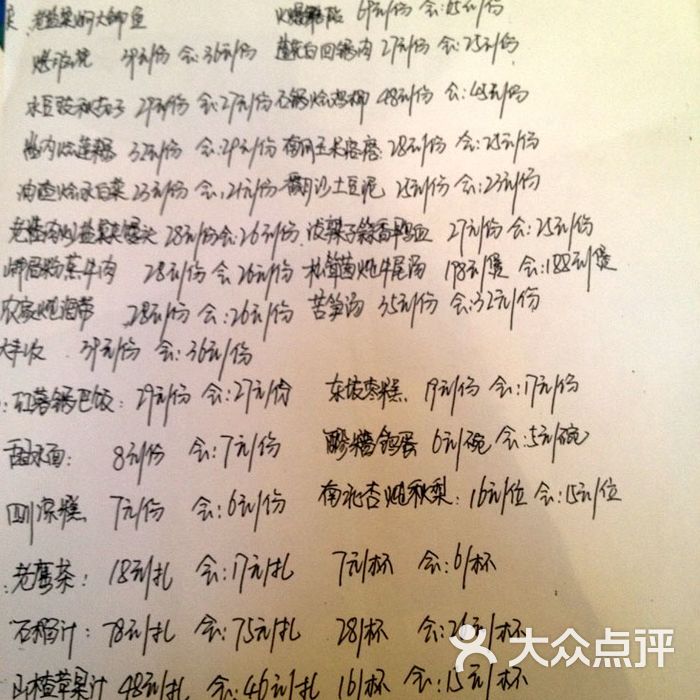 老盐菜焖大鲫鱼 69元/份 会:65元/份
39元/份 会:36元/份 回锅肉 27元/份 会:25元/份
水豆豉秋茄子 29元/份 会:27元/份 石锅烩鸡柳 48元/份 会:45元/份
32元/份 会:29元/份 南瓜玉米 28元/份 会:25元/份
油渣烩水白菜 23元/份 会:21元/份 土豆泥 25元/份 会:23元/份
28元/份 会:26元/份 27元/份 会:25元/份
峨眉粉蒸牛肉 28元/份 会:26元/份 松茸菌炖牛尾汤 198元/煲 会:188元/煲
农家炖海带 28元/份 会:26元/份 苦笋汤 35元/份 会:32元/份
大丰收 39元/份 会:36元/份
红薯锅巴饭: 29元/份 会:27元/份 东坡枣糕 19元/份 会:17元/份
甜水面: 8元/份 会:7元/份 醪糟鸡蛋 6元/碗 会:5元/碗
四川凉糕 7元/份 会:6元/份 南北杏炖秋梨: 16元/位 会:15元/位
老鹰茶: 18元/扎 会:17元/扎 7元/杯 会:6/杯
石榴汁: 78元/扎 会:75元/扎 28/杯 会:26元/杯
山楂苹果汁 48元/扎 会:46元/扎 16/杯 会:15元/杯
大众点评